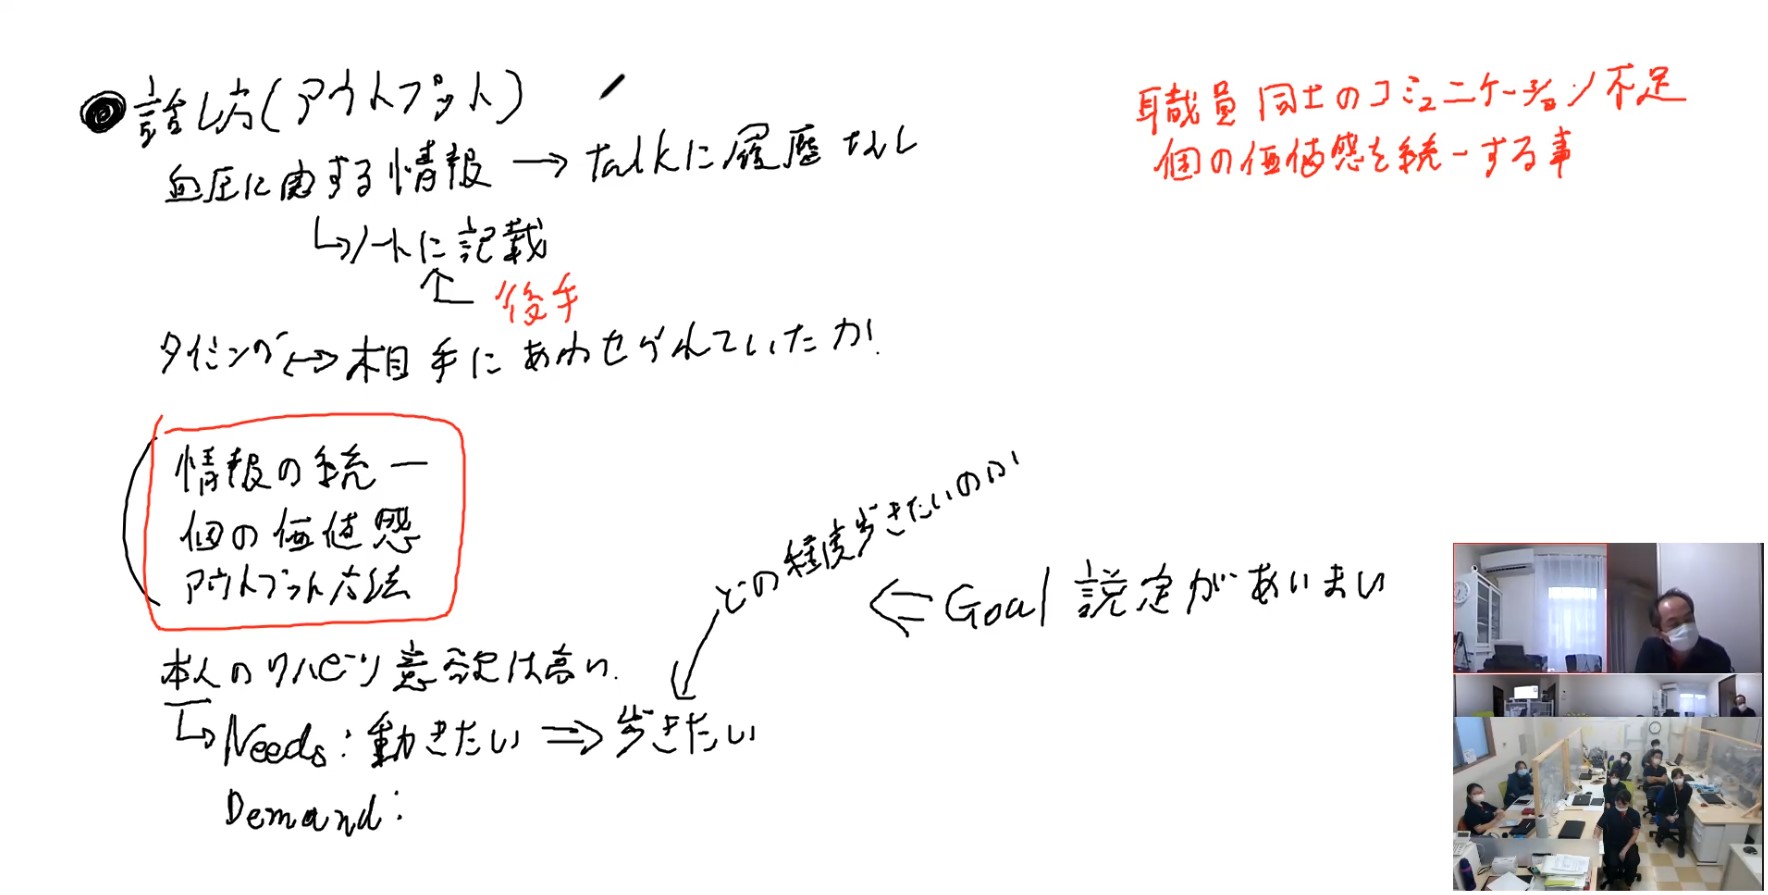 話し方(アウトプット)
血圧に関する情報→talkに履歴なし
↳ノートに記載
後手
タイミング↔相手にあわせられていたか
情報の統一
個の価値感
アウトプット方法
本人のリハビリ意欲は高い.
↳Needs:動きたい⇒歩きたい
Demand:
どの程度歩きたいのか
⇐Goal設定があいまい
職員同士のコミュニケーション不足
個の価値感を統一する事